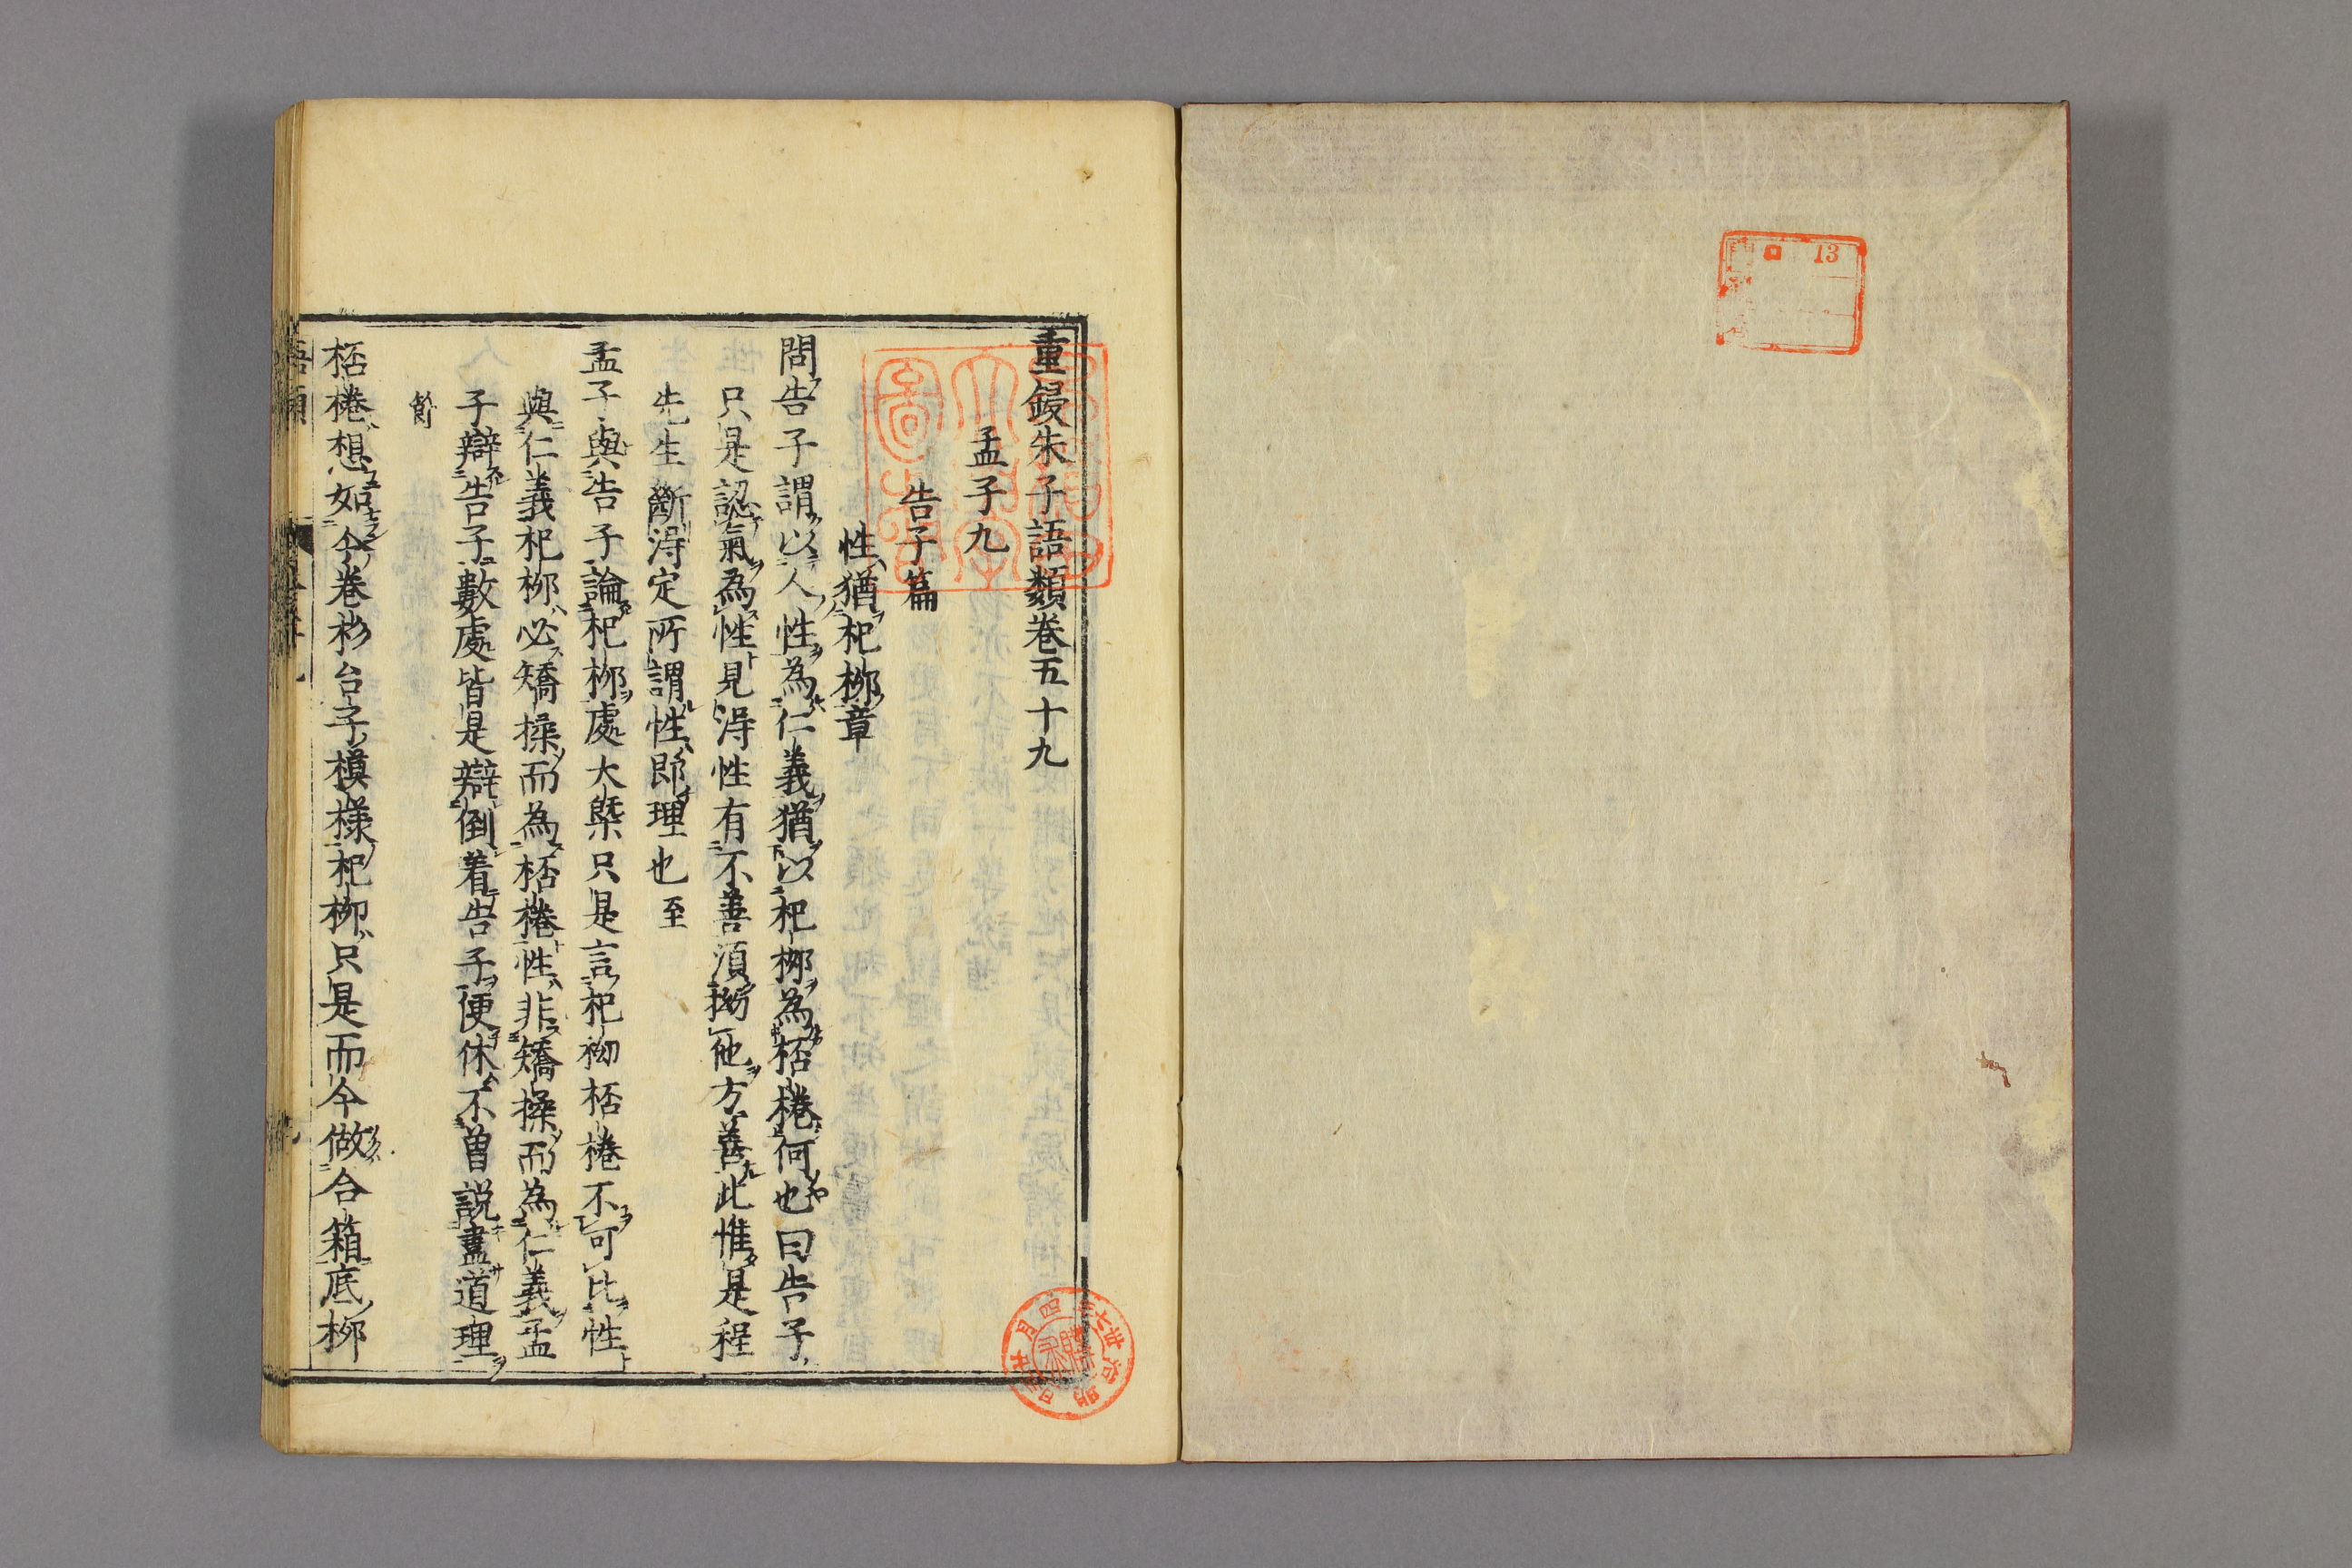 重鋟朱子語類卷五十九
孟子九
告子篇
性猶杞柳章
問告子謂以人性為仁義猶以杞柳為桮棬何也曰告子
只是認氣為性見得性有不善須拗他方善此惟是程
先生斷得定所謂性即理也至
孟子與告子論杞柳處大槩只是言杞柳桮棬不可比性
與仁義杞柳必矯揉而為桮棬性非矯揉而為仁義孟
子辯告子數處皆是辯倒着告子便休不曾説盡道理
節
桮棬想如今卷杉台子模様杞柳只是而今做合箱底柳
語類
13